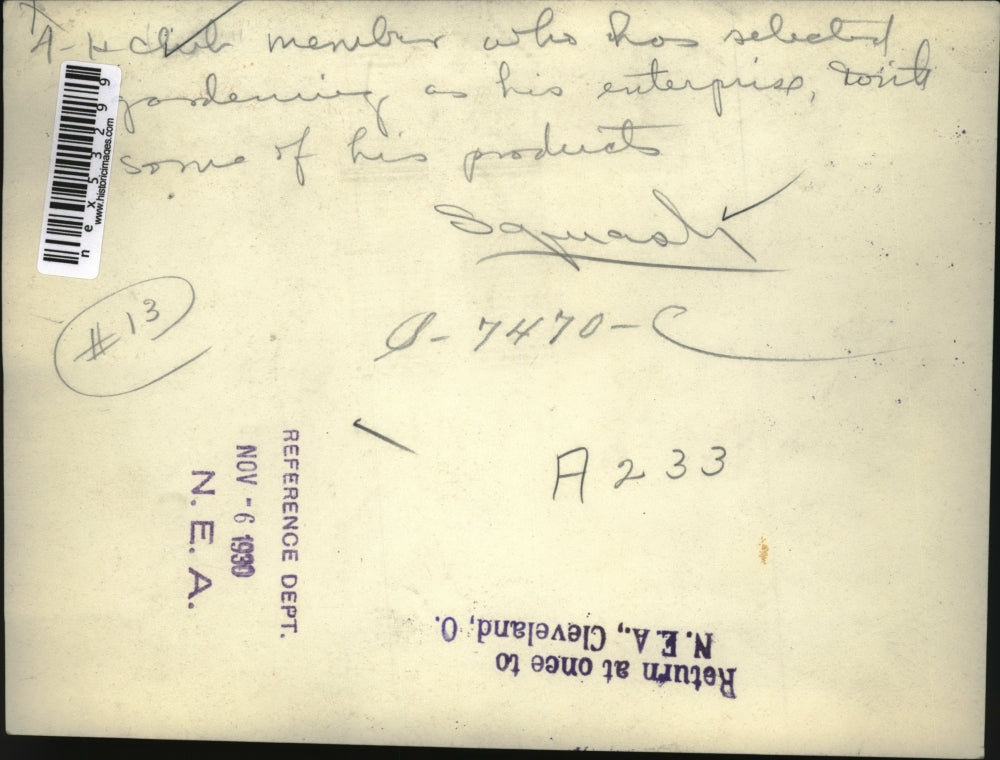 4-H club member who has selected
gardening as his enterprise, with
some of his products
Squash
#13
7470-C
A233
REFERENCE DEPT.
NOV - 6 1930
N. E. A.
Return at once to
N. E. A., Cleveland, O.
nex53299
www.historicimages.com